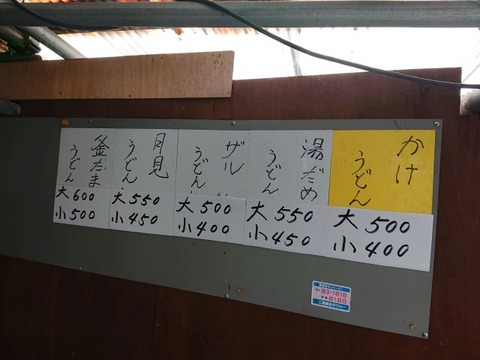 かけ
うどん
大 500
小 400
湯だめ
うどん
大 550
小 450
ザル
うどん
大 500
小 400
月見
うどん
大 550
小 450
釜だま
うどん
大 600
小 500
83-1818
6160